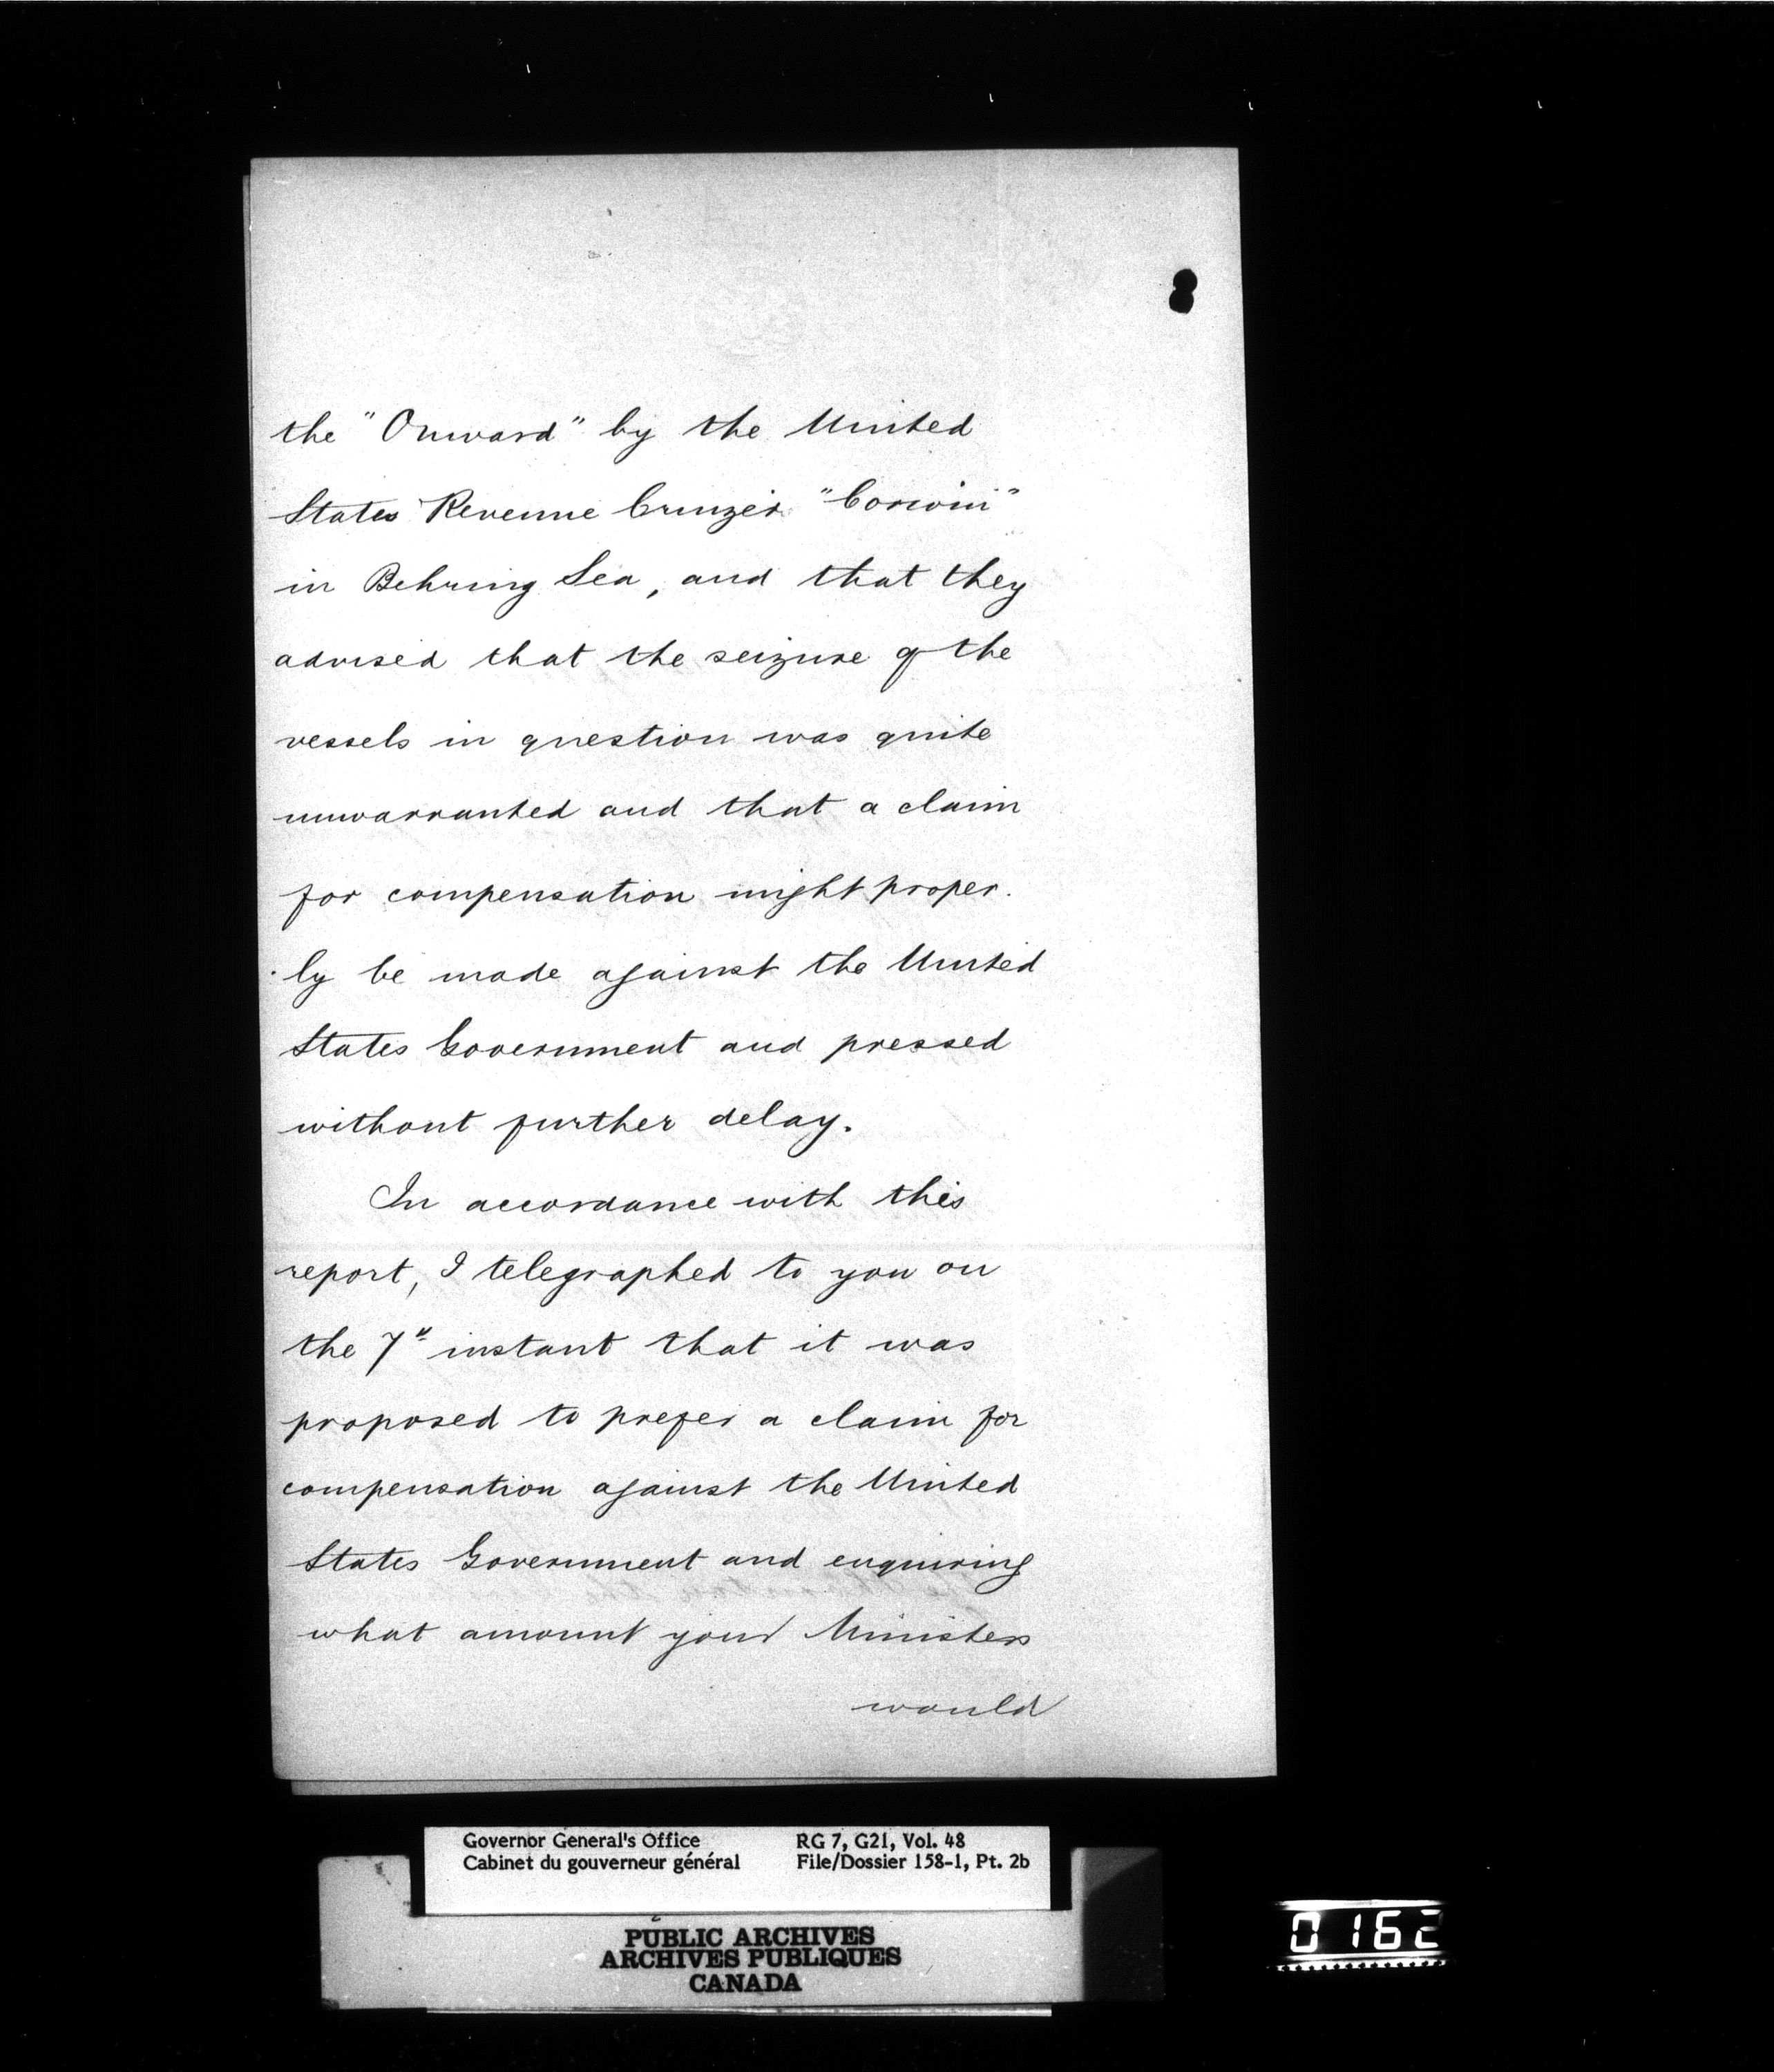 the "Onward" by the United
States Revenue Cruizer "Corwin"
in Behring Sea, and that they
advised that the seizure of the
vessels in question was quite
unwarranted and that a claim
for compensation might proper-
-ly be made against the United
States Government and pressed
without further delay.
In accordance with this
report, I telegraphed to you on
the 7th instant that it was
proposed to prefer a claim for
compensation against the United
States Government and enquiring
what amount your Ministers
would
Governor General's Office RG 7, G21, Vol. 48
Cabinet du gouverneur général File/Dossier 158-1, Pt. 2b
PUBLIC ARCHIVES
ARCHIVES PUBLIQUES
CANADA
0162